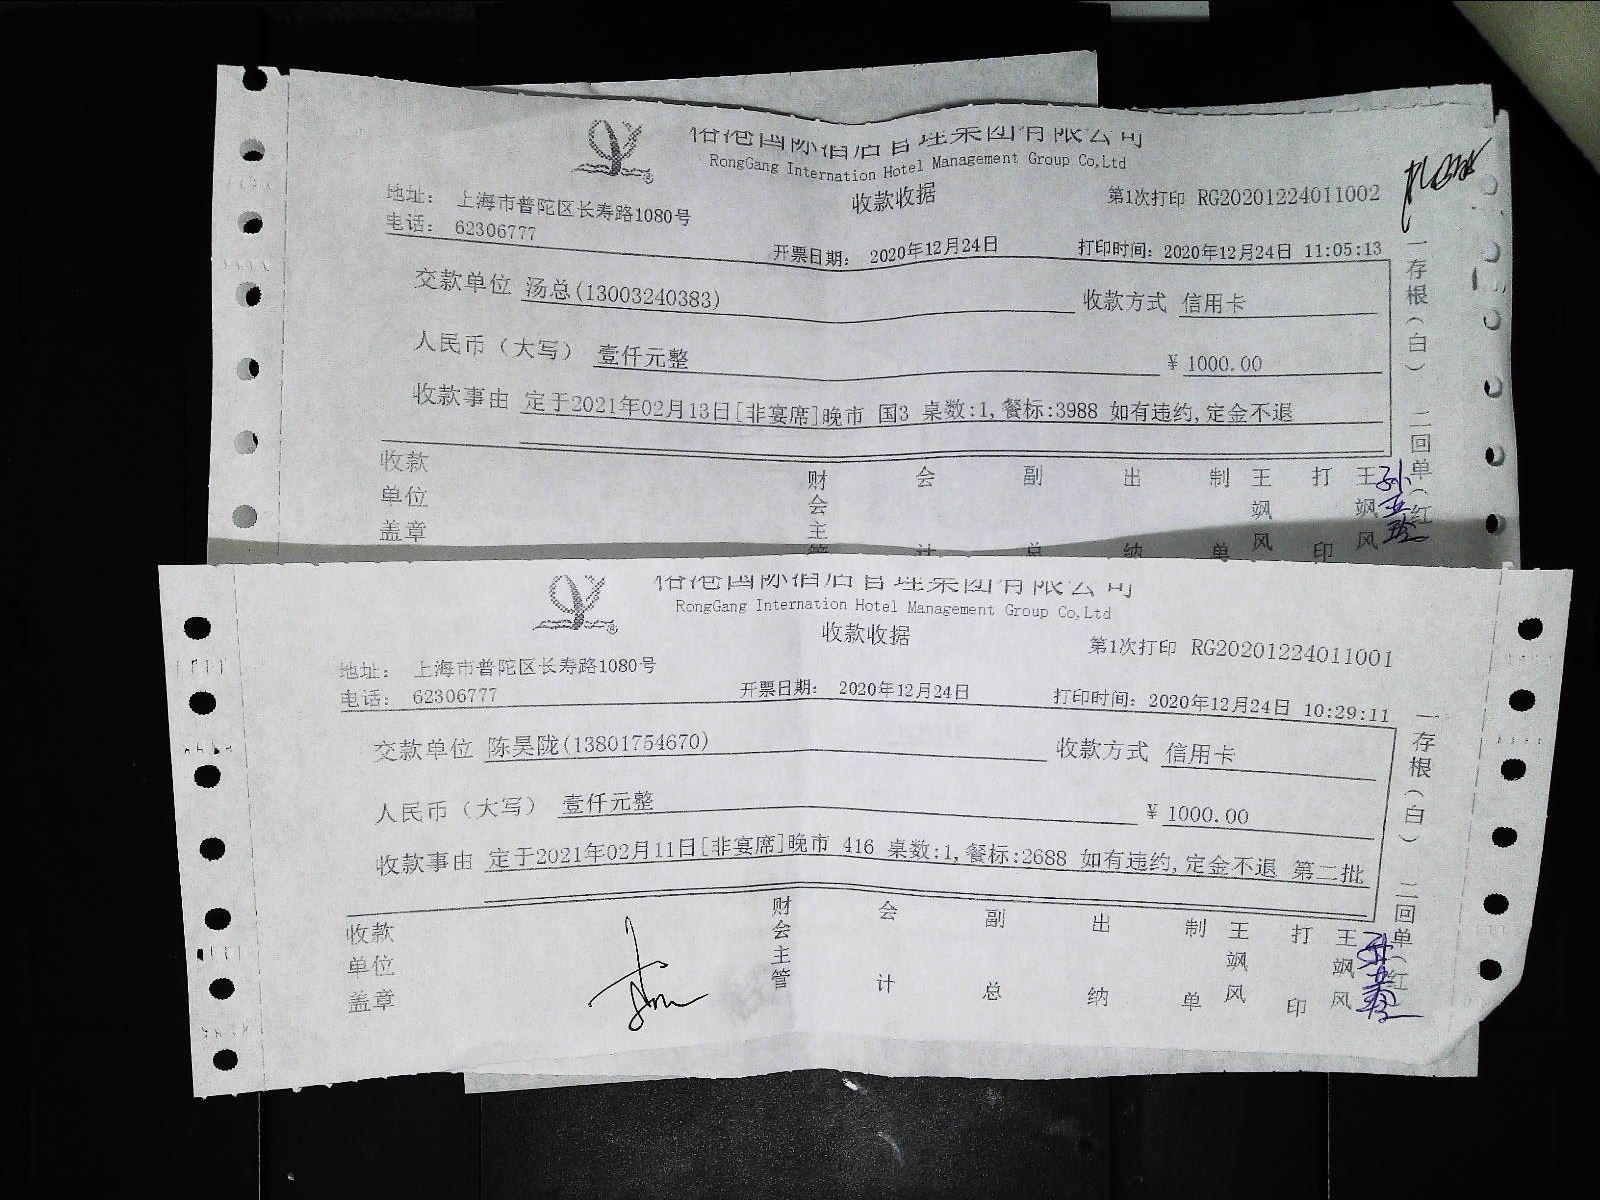 国际酒店管理集团有限公司
RongGang Internation Hotel Management Group Co,Ltd
收款收据
第1次打印 RG20201224011002
地址： 上海市普陀区长寿路1080号
电话： 62306777
开票日期： 2020年12月24日
打印时间：2020年12月24日 11:05:13
交款单位 汤总(13003240383)
收款方式 信用卡
人民币（大写） 壹仟元整
¥ 1000.00
收款事由 定于2021年02月13日[非宴席]晚市 国3 桌数:1,餐标:3988 如有违约,定金不退
收款单位盖章
财会主管
会计
副总
出纳
制单
王飒风
打印
王飒风
一存根（白） 二回单（红
国际酒店管理集团有限公司
RongGang Internation Hotel Management Group Co,Ltd
收款收据
第1次打印 RG20201224011001
地址： 上海市普陀区长寿路1080号
电话： 62306777
开票日期： 2020年12月24日
打印时间：2020年12月24日 10:29:11
交款单位 陈昊陇(13801754670)
收款方式 信用卡
人民币（大写） 壹仟元整
¥ 1000.00
收款事由 定于2021年02月11日[非宴席]晚市 416 桌数:1,餐标:2688 如有违约,定金不退 第二批
收款单位盖章
财会主管
会计
副总
出纳
制单
王飒风
打印
王飒风
一存根（白） 二回单（红